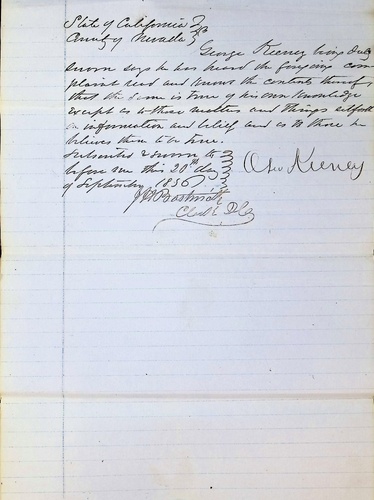 State of California } ss
County of Nevada }
George Keeney being duly
sworn says he has heard the foregoing com
plaint read and knows the contents thereof
that the same is true of his own knowledge
except as to those matters and things set forth
on information and belief and as to those he
believes them to be true.
Subscribed & sworn to }
before me this 20th day } Geo Keeney
of September 1856 }
Clerk